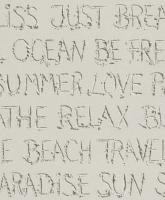 LISS JUST BREA
L OCEAN BE FRE
SUMMER LOVE
THE RELAX BL
E BEACH TRAVEL
PARADISE SUN S